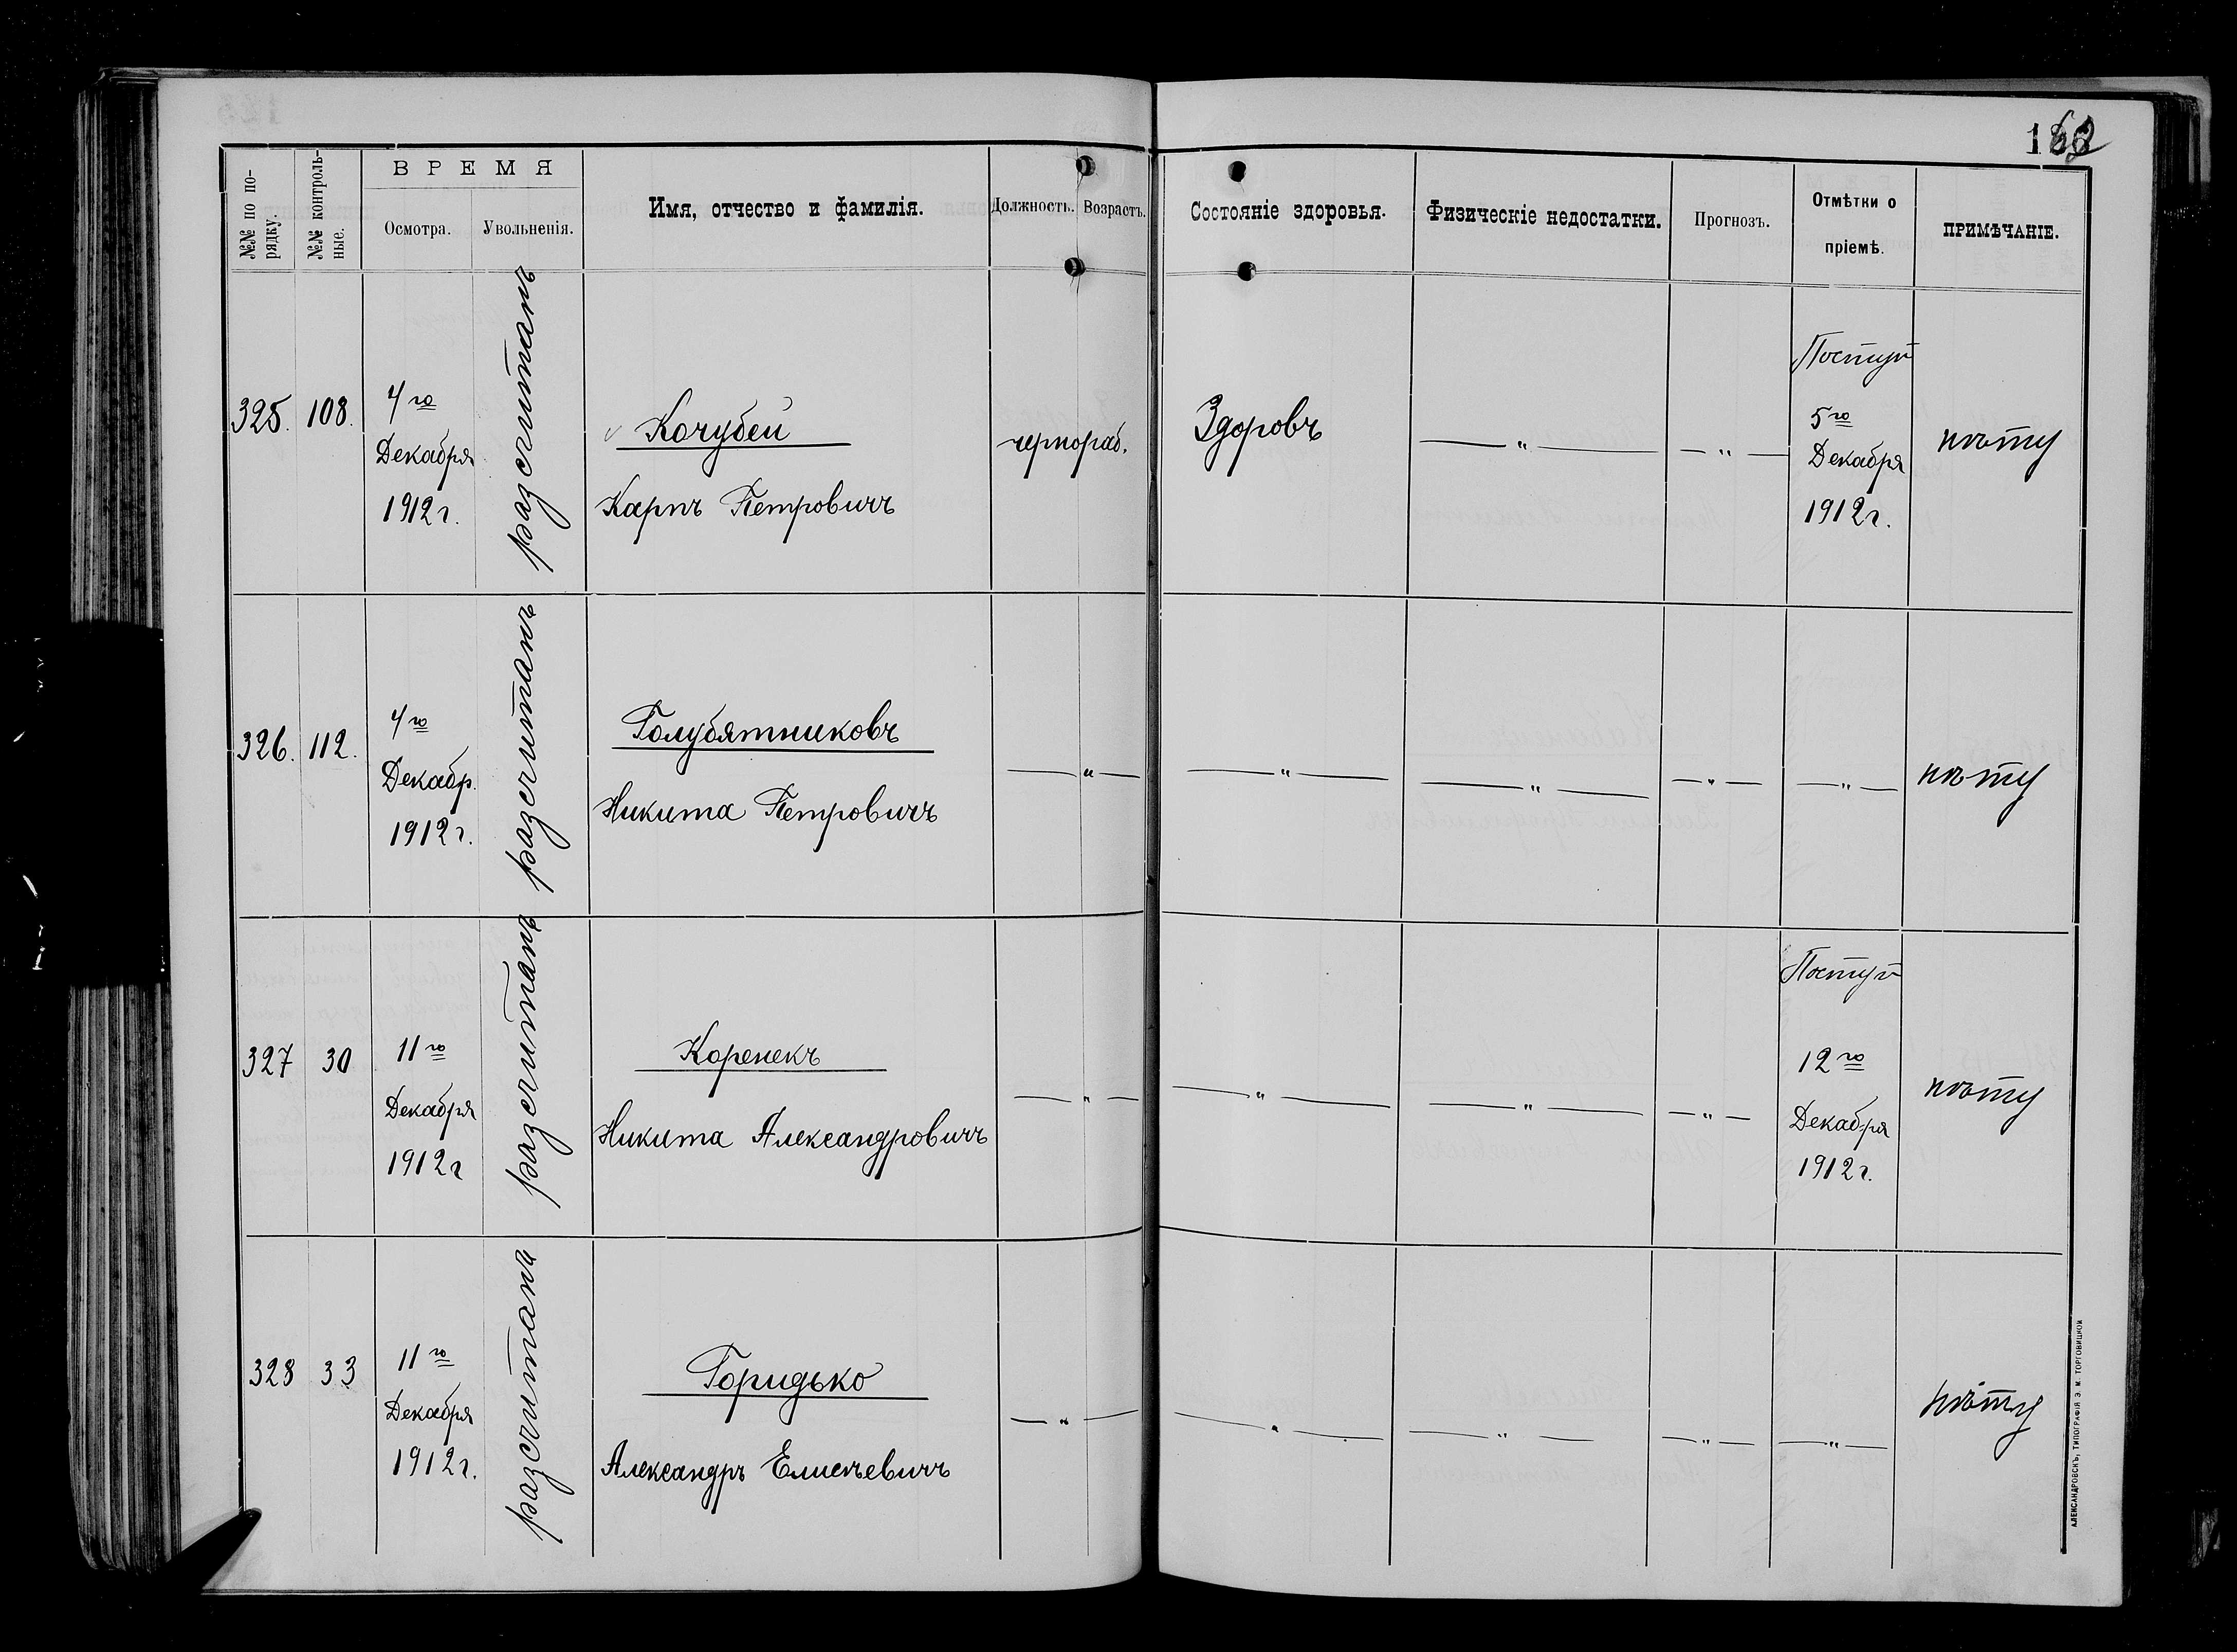 ВРЕМЯ
№№ по по-
рядку.
№№ контроль-
ные.
Осмотра.
Увольненія.
Имя, отчество и фамилія.
Должность.
Возрастъ.
Состояніе здоровья.
Физическіе недостатки.
Прогнозъ.
Отмѣтки о
пріемѣ.
ПРИМѢЧАНІЕ.
325.
108.
4го
Декабря
1912 г.
разсчитанъ
Кочубей
Карпъ Петровичъ
чернораб.
Здоровъ
— " —
— " —
Поступ
5го
Декабря
1912 г.
нѣту
326.
112.
4го
Декабр.
1912 г.
разсчитанъ
Голубятниковъ
Никита Петровичъ
— " —
— " —
— " —
— " —
— " —
нѣту
327
30
11го
Декабря
1912 г
разсчитанъ
Коренекъ
Никита Александровичъ
— " —
— " —
— " —
— " —
Поступ
12го
Декабря
1912 г.
нѣту
328
33
11го
Декабря
1912 г.
разсчитанъ
Горидько
Александръ Елисѣевичъ
— " —
— " —
— " —
— " —
— " —
нѣту
АЛЕКСАНДРОВСКЪ, ТИПОГРАФІЯ Э. М. ТОРГОВИЦКОЙ